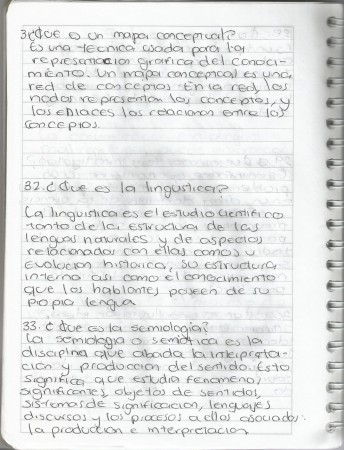 3¿Que es un mapa conceptual?
Es una tecnica usada para la
representacion grafica del conoci-
miento. Un mapa conceptual es una
red de conceptos. En la red, los
nodos representan los conceptos, y
los enlaces las relaciones entre los
conceptos.
32.¿Que es la lingustica?
La linguistica es el estudio cientifico
tanto de la estructura de las
lenguas naturales y de aspectos
relacionados con ellas como su
evolucion historica, su estructura
interna asi como el conocimiento
que los hablantes poseen de su
propia lengua
33. ¿Que es la semiologia?
La semiologia o semiotica es la
disciplina que aboda la interpreta-
cion y produccion del sentido. Esto
significa que estudia fenomeno,
significantes, objetos de sentidos,
sistemas de significacion, lenguajes
discursos y los procesos a ellos asociados:
la produccion e interpretacion